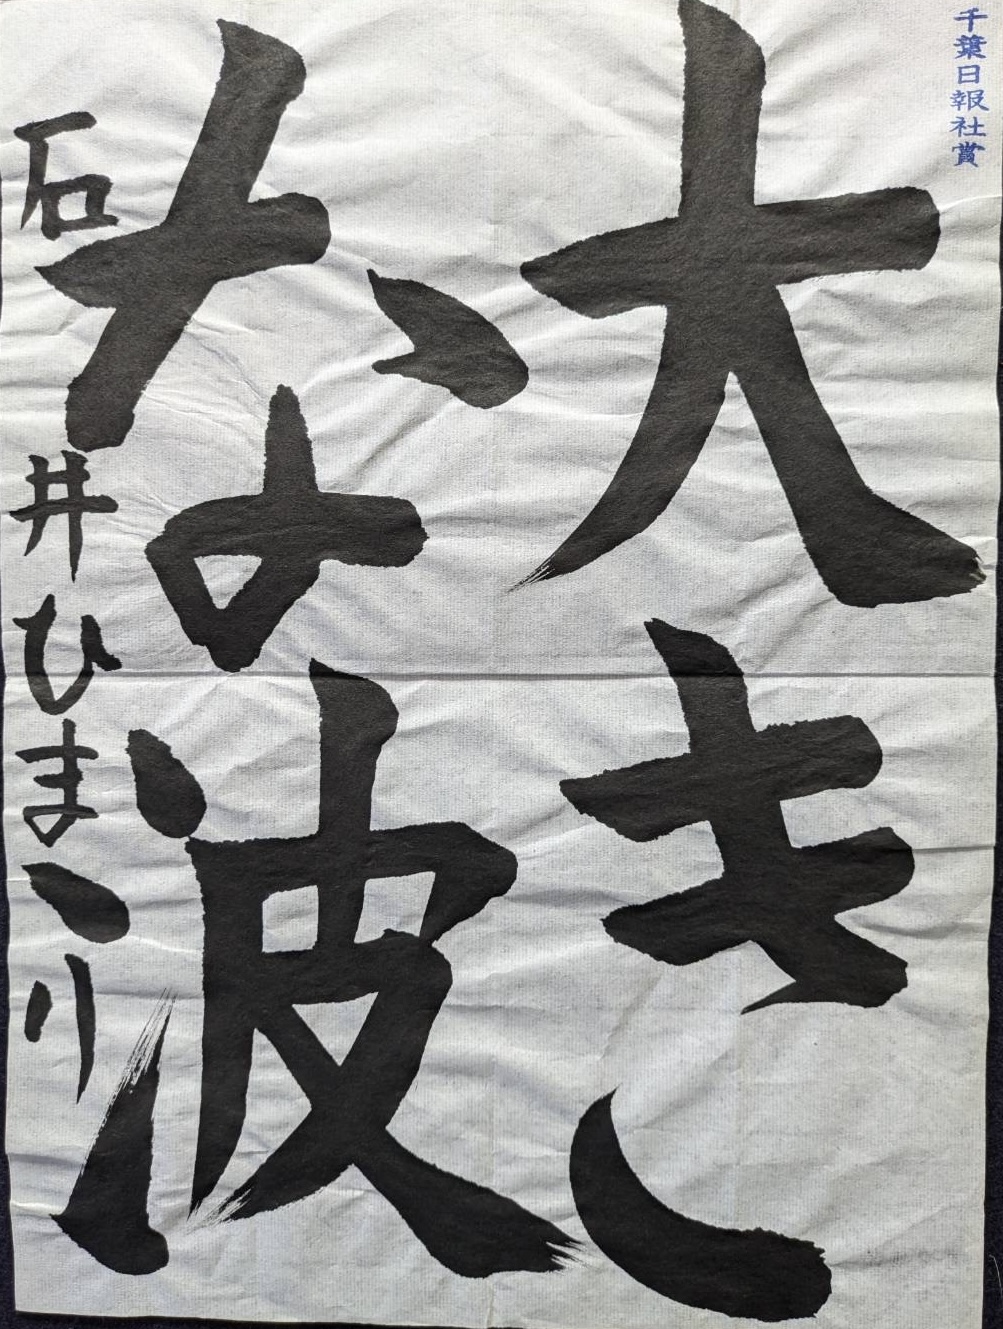 千葉日報社賞
大き
な波
石井ひまり